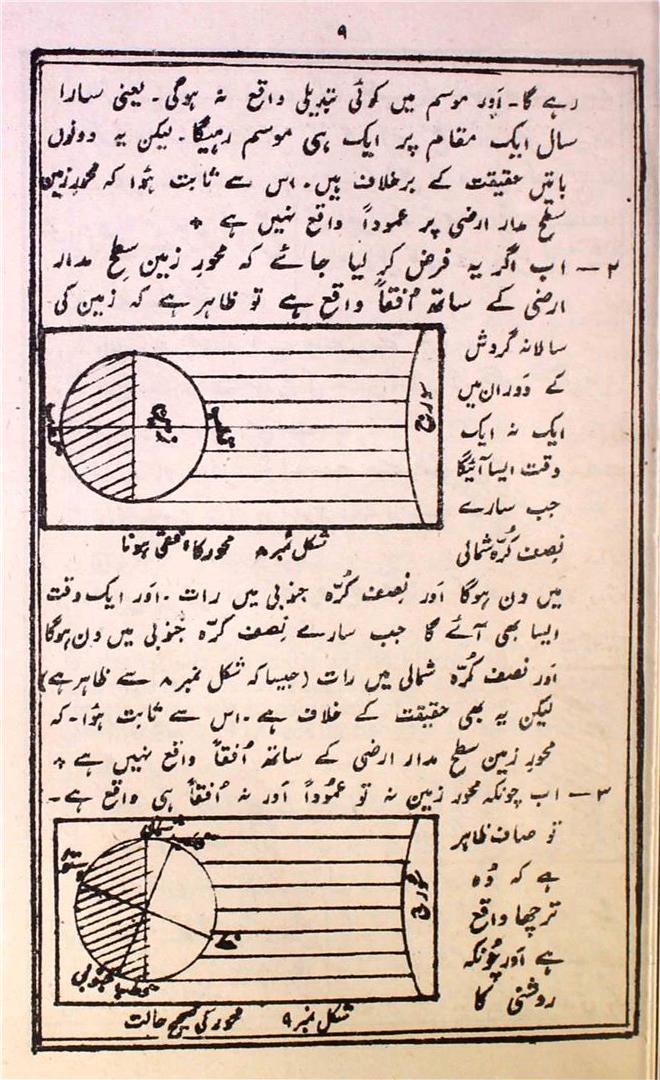 ۹
رہے گا۔ اَور موسم میں کوئی تبدیلی واقع نہ ہوگی۔ یعنی سارا
سال ایک مقام پر ایک ہی موسم رہیگا۔ لیکن یہ دونوں
باتیں حقیقت کے برخلاف ہیں۔ اس سے ثابت ہُوا کہ محورِ زمین
سطح مدار ارضی پر عموداً واقع نہیں ہے +
۲ — اب اگر یہ فرض کر لیا جائے کہ محورِ زمین سطح مدار
ارضی کے ساتھ اُفقاً واقع ہے تو ظاہر ہے کہ زمین کی
سالانہ گردش
کے دَوران میں
ایک نہ ایک
وقت ایسا آئیگا
جب سارے
نصف کُرّہ شمالی
سورج
زمین
قطب
قطب
شکل نمبر ۸ محور کا اُفقی ہونا
میں دن ہوگا اَور نصف کُرّہ جنوبی میں رات ۔ اَور ایک وقت
ایسا بھی آئے گا جب سارے نصف کُرّہ جنوبی میں دن ہوگا
اَور نصف کُرّہ شمالی میں رات (جیسا کہ شکل نمبر ۸ سے ظاہر ہے)
لیکن یہ بھی حقیقت کے خلاف ہے۔ اس سے ثابت ہُوا۔ کہ
محورِ زمین سطح مدار ارضی کے ساتھ اُفقاً واقع نہیں ہے +
۳ — اب چونکہ محور زمین نہ تو عمُوداً اَور نہ اُفقاً ہی واقع ہے۔
تو صاف ظاہر
ہے کہ وُہ
ترچھا واقع
ہے اَور چُونکہ
روشنی کا
سُورج
قطب شمالی
خط
استوا
قطب جنوبی
شکل نمبر ۹ محور کی صحیح حالت